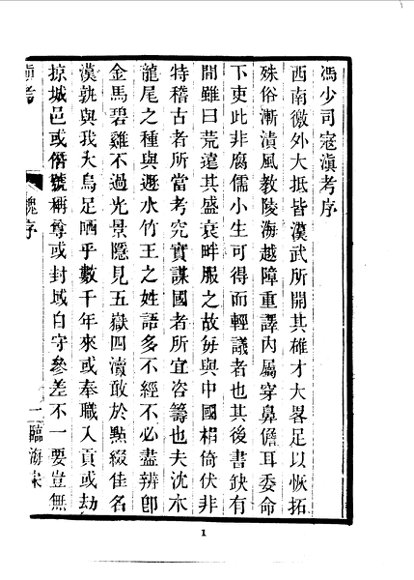 馮少司寇滇考序
西南徼外大抵皆漢武所開其雄才大畧足以恢拓
殊俗漸漬風教陵海越障重譯内屬穿鼻儋耳委命
下吏此非腐儒小生可得而輕議者也其後書缺有
間雖曰荒遠其盛衰畔服之故毎與中國相倚伏非
特稽古者所當考究實謀國者所宜咨籌也夫沈木
龍尾之種與遯水竹王之姓語多不經不必盡辨卽
金馬碧雞不過光景隱見五嶽四瀆敢於點綴佳名
漢孰與我大烏足哂乎數千年來或奉職入貢或劫
掠城邑或僭號稱尊或封域自守參差不一要豈無
滇考
魏序
一臨海宋
1